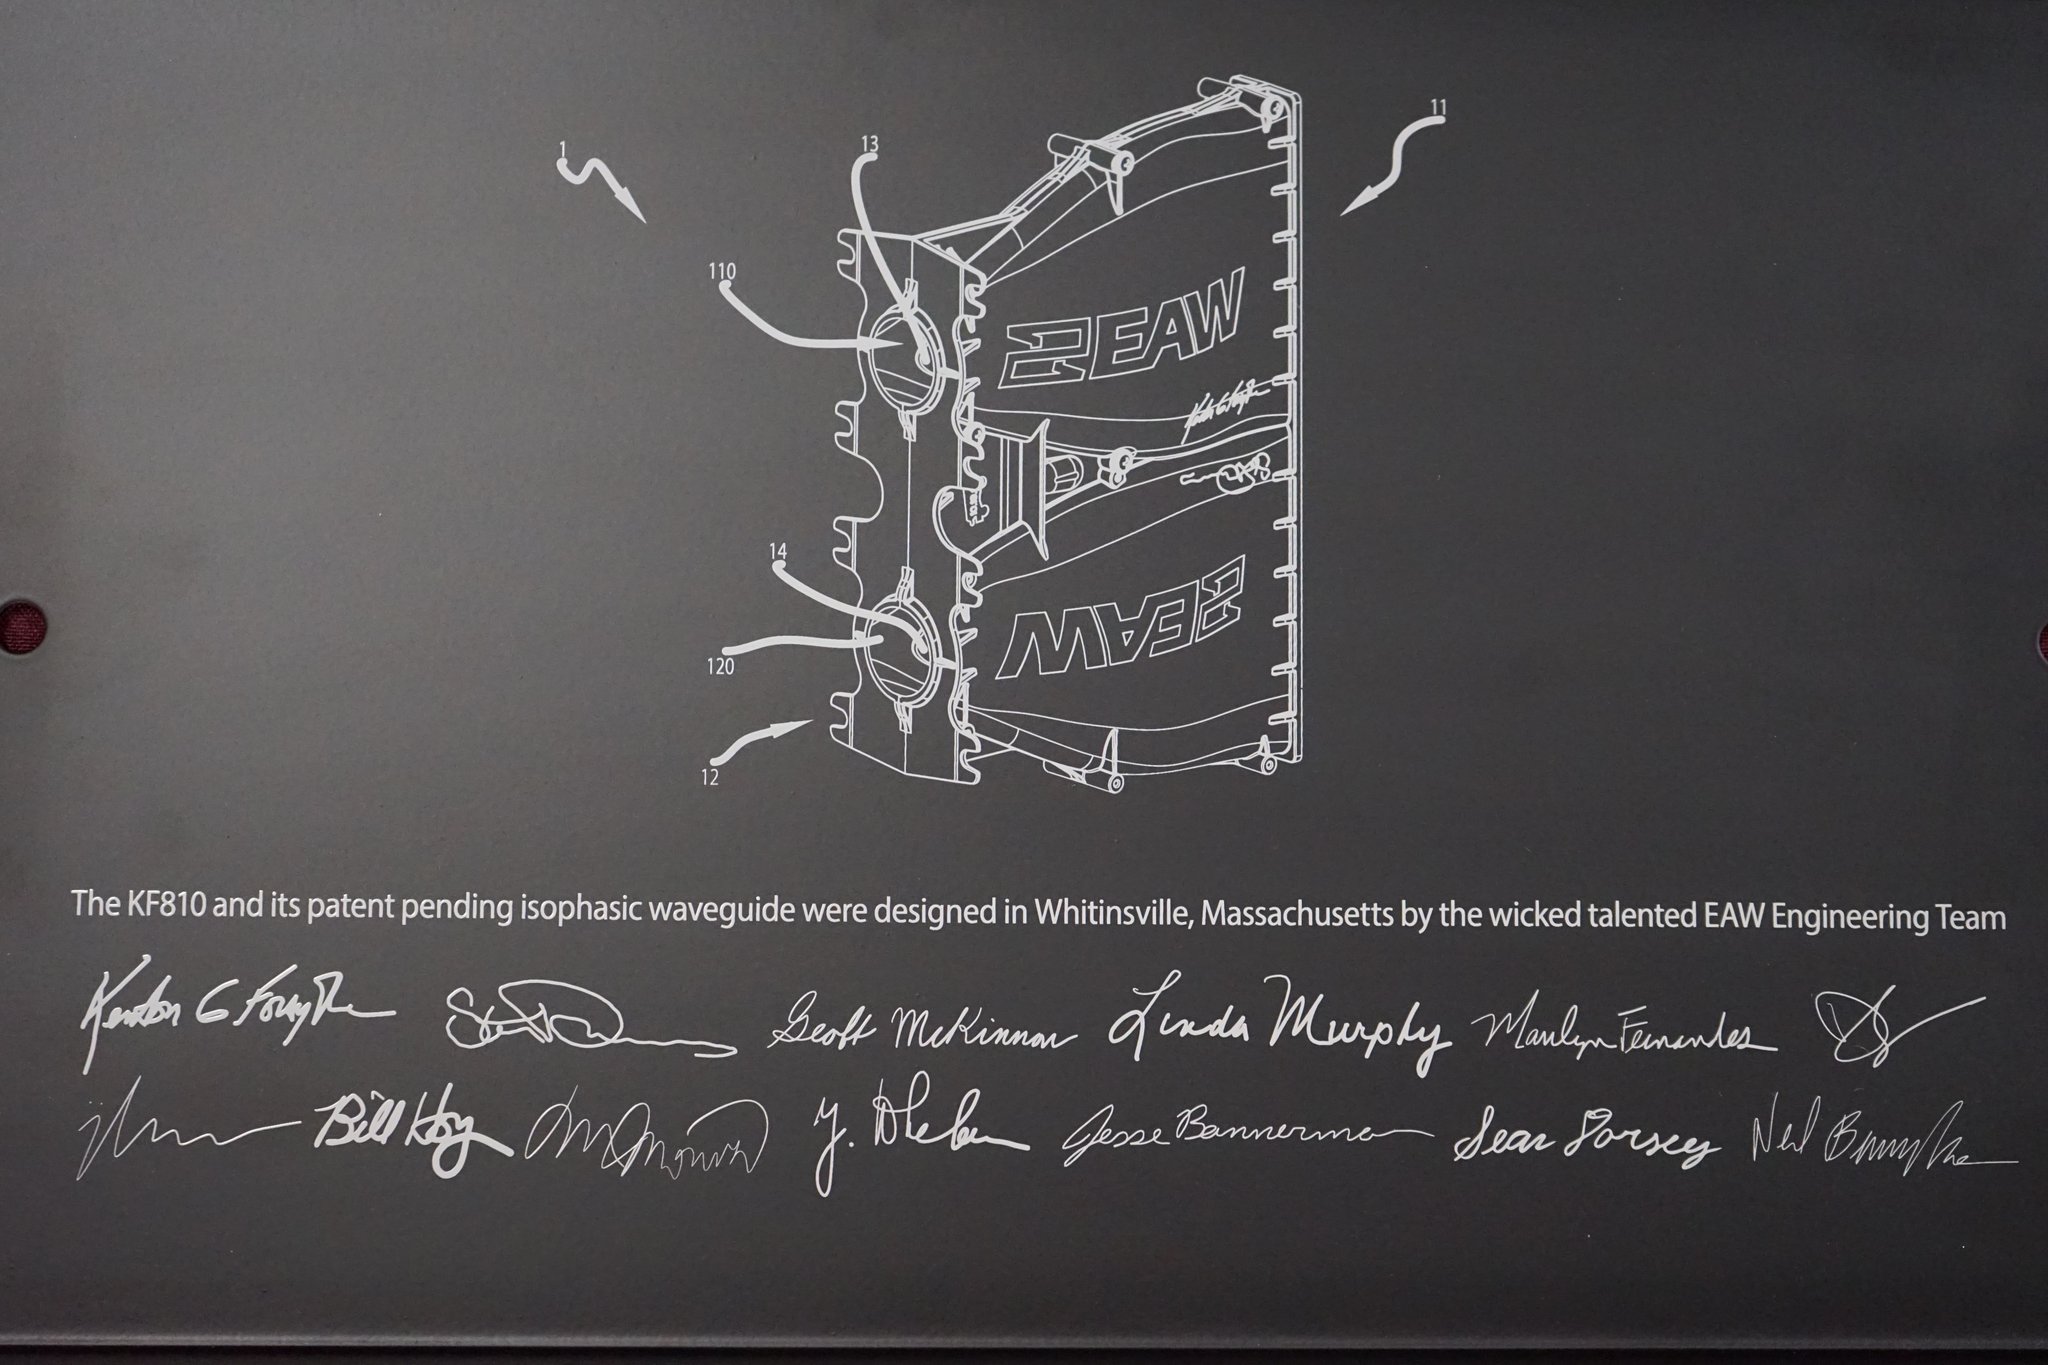 1
13
11
110
EAW
Kenton G Forsythe
14
EAW
120
12
The KF810 and its patent pending isophasic waveguide were designed in Whitinsville, Massachusetts by the wicked talented EAW Engineering Team
Kenton G Forsythe Geoff McKinnon Linda Murphy Marilyn Fernandes
Bill Hoy Jesse Bannerman Sean Dorsey Neil